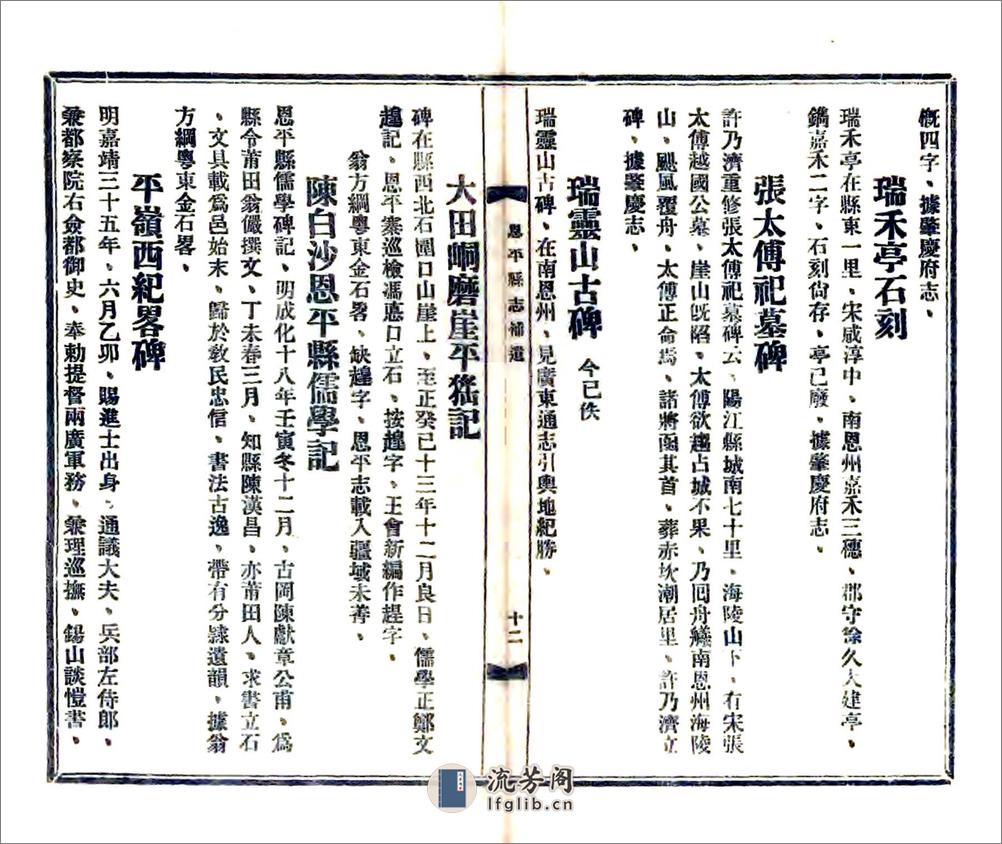 慨四字、據肇慶府志、
瑞禾亭石刻
瑞禾亭在縣東一里、宋咸淳中、南恩州嘉禾三穗、郡守徐久大建亭、
鐫嘉禾二字、石刻尙存、亭已廢、據肇慶府志、
張太傅祀墓碑
許乃濟重修張太傅祀墓碑云、陽江縣城南七十里、海陵山下、有宋張
太傅越國公墓、崖山旣陷、太傅欲趨占城不果、乃囘舟艤南恩州海陵
山、颶風覆舟、太傅正命焉、諸將函其首、葬赤坎潮居里、許乃濟立
碑、據肇慶志、
瑞靈山古碑 今已佚
瑞靈山古碑、在南恩州、見廣東通志引輿地紀勝、
恩平縣志補遺
十二
大田峒磨崖平猺記
碑在縣西北石圍口山崖上、至正癸巳十三年十二月良日、儒學正鄭文
趧記、恩平寨巡檢馮㥁口立石、按趧字、王會新編作趕字、
翁方綱粵東金石畧、缺趧字、恩平志載入疆域未善、
陳白沙恩平縣儒學記
恩平縣儒學碑記、明成化十八年壬寅冬十二月、古岡陳獻章公甫、爲
縣令莆田翁儼撰文、丁未春三月、知縣陳漢昌、亦莆田人、求書立石
、文具載爲邑始末、歸於敎民忠信、書法古逸、帶有分隸遺韻、據翁
方綱粵東金石畧、
平嶺西紀畧碑
明嘉靖三十五年、六月乙卯、賜進士出身、通議大夫、兵部左侍郎、
兼都察院右僉都御史、奉勅提督兩廣軍務、兼理巡撫、錫山談愷書、
流芳阁
lfglib.cn